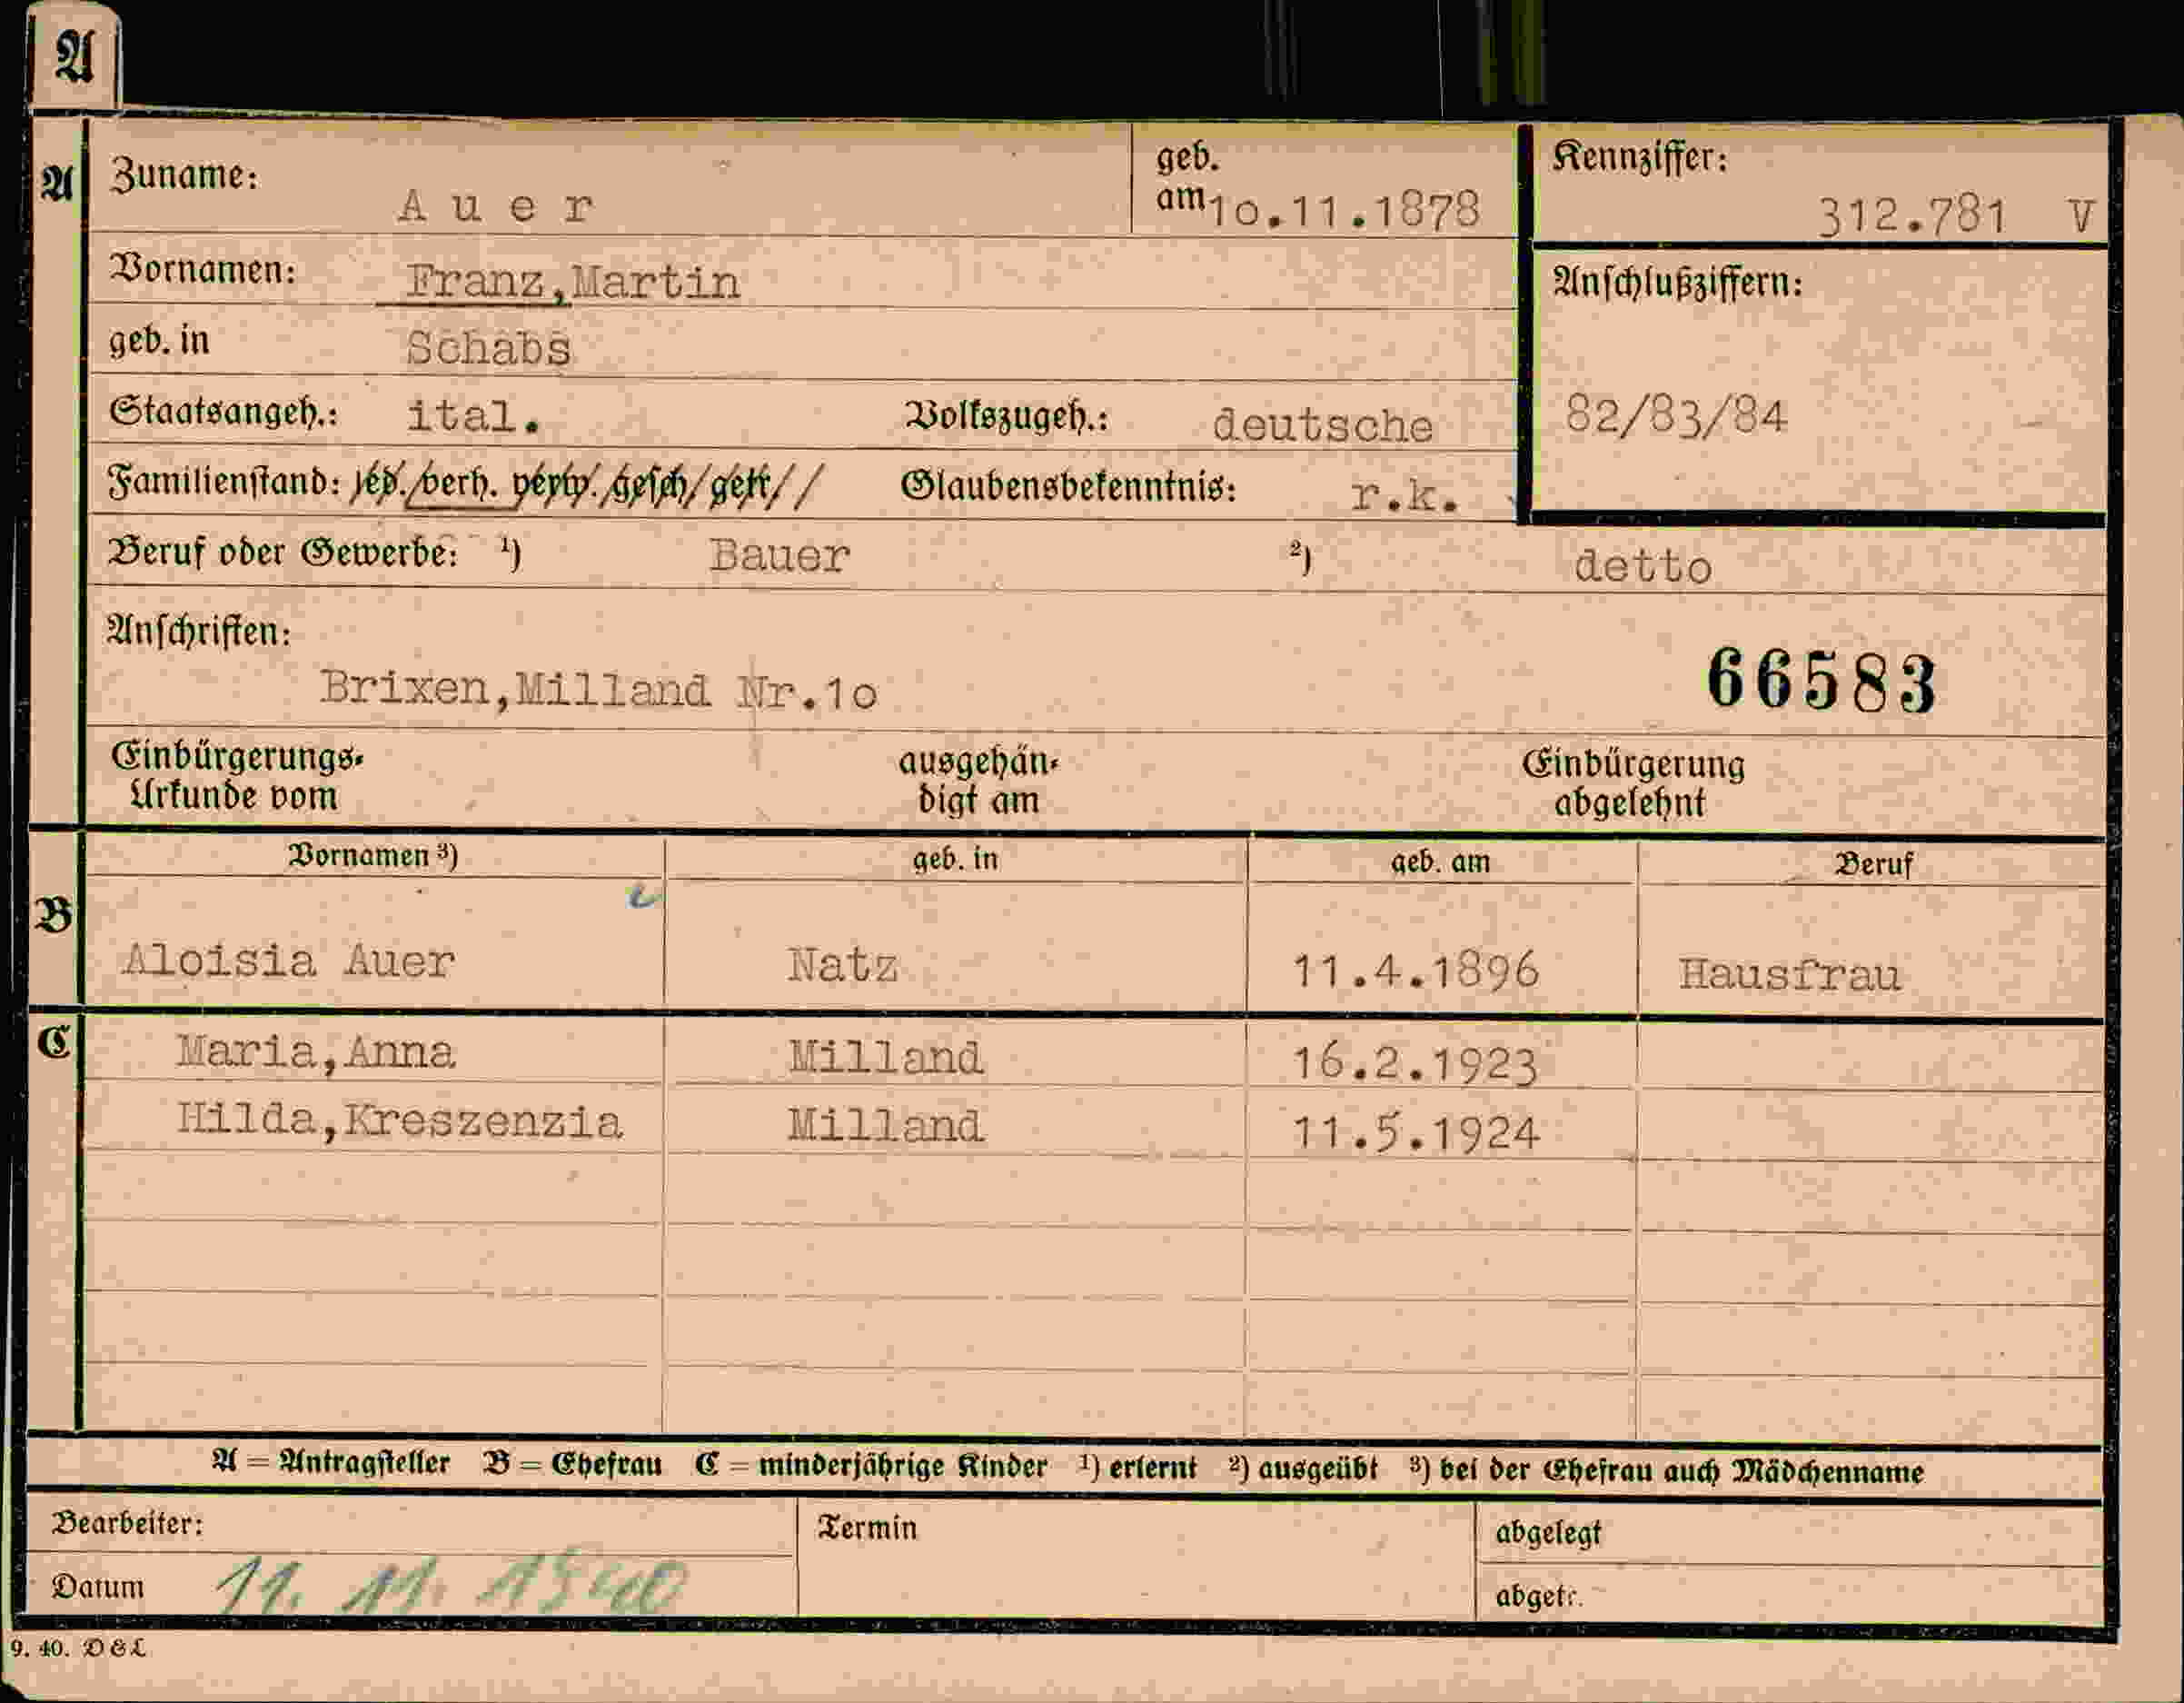 A
A
Zuname: Auer
geb. am 10.11.1878
Kennziffer: 312.781 V
Vornamen: Franz,Martin
Anschlußziffern:
82/83/84
geb. in Schabs
Staatsangeh.: ital. Volkszugeh.: deutsche
Familienstand: led./verh. verw./gesch/getr// Glaubensbekenntnis: r.k.
Beruf oder Gewerbe: ¹) Bauer ²) detto
Anschriften:
Brixen,Milland Nr.10
66583
Einbürgerungs-
Urkunde vom
ausgehän-
digt am
Einbürgerung
abgelehnt
B
Vornamen ³) geb. in geb. am Beruf
Aloisia Auer Natz 11.4.1896 Hausfrau
C
Maria,Anna Milland 16.2.1923
Hilda,Kreszenzia Milland 11.5.1924
A = Antragsteller B = Ehefrau C = minderjährige Kinder ¹) erlernt ²) ausgeübt ³) bei der Ehefrau auch Mädchenname
Bearbeiter:
Termin
abgelegt
Datum 11. 11. 1940
abgetr.
9. 40. D&L